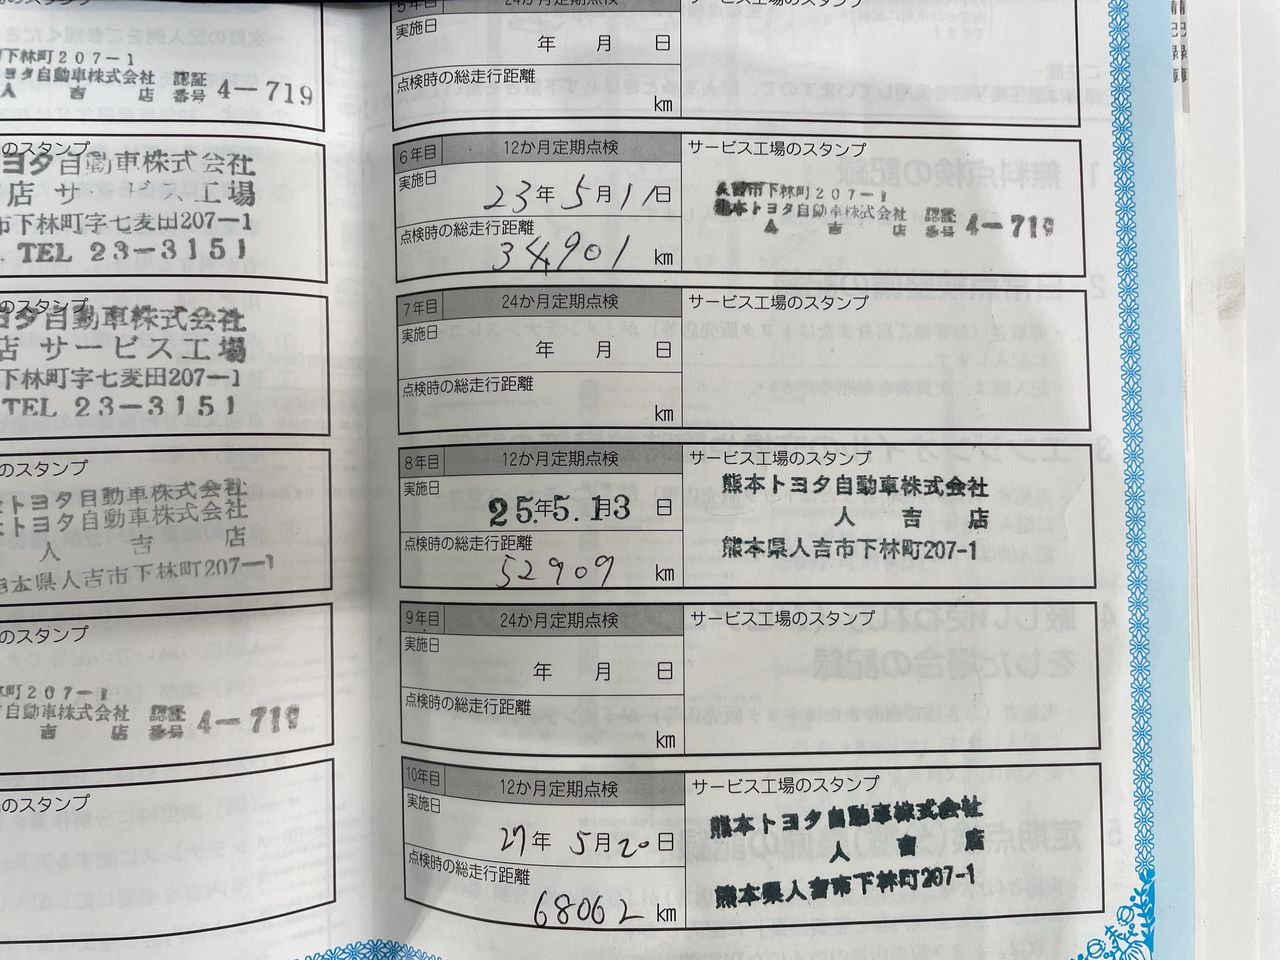 町下林町207-1
ヨタ自動車株式会社 認証
人 吉 店 番号 4-719
のスタンプ
ヨタ自動車株式会社
店 サービス工場
市下林町字七麦田207-1
TEL 23-3151
のスタンプ
ヨタ自動車株式会社
店 サービス工場
下林町字七麦田207-1
TEL 23-3151
のスタンプ
トヨタ自動車株式会社
トヨタ自動車株式会社
人 吉 店
本県人吉市下林町207-1
のスタンプ
林町207-1
タ自動車株式会社 認証
吉 店 番号 4-719
のスタンプ
5年目 24か月定期点検 サービス工場のスタンプ
実施日
年 月 日
点検時の総走行距離
km
6年目 12か月定期点検 サービス工場のスタンプ
実施日
23年 5月 11日
点検時の総走行距離
34,901 km
人吉市下林町207-1
熊本トヨタ自動車株式会社 認証
人 吉 店 番号 4-719
7年目 24か月定期点検 サービス工場のスタンプ
実施日
年 月 日
点検時の総走行距離
km
8年目 12か月定期点検 サービス工場のスタンプ
実施日
25年5.1月3 日
点検時の総走行距離
52909 km
熊本トヨタ自動車株式会社
人 吉 店
熊本県人吉市下林町207-1
9年目 24か月定期点検 サービス工場のスタンプ
実施日
年 月 日
点検時の総走行距離
km
10年目 12か月定期点検 サービス工場のスタンプ
実施日
27年 5月20日
点検時の総走行距離
68062 km
熊本トヨタ自動車株式会社
人 吉 店
熊本県人吉市下林町207-1